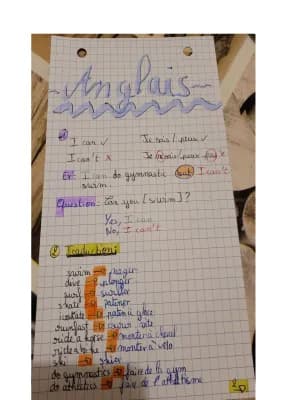 Anglais
I can ✓ Je sais / peux ✓
I can't x Je ne sais / peux pas x
Ex: I can do gymnastic but I can't
swim.
Question: Can you [swim]?
Yes, I can
No, I can't
② Traduction:
swim → nager
dive → plonger
surf → surfer
skate → patiner
→ patin à glace
run fast → courir vite
ride a horse → monter à cheval
ride a bike → monter à vélo
ski → skier
do gymnastics → faire de la gym
do athletics → faire de l'athlétisme